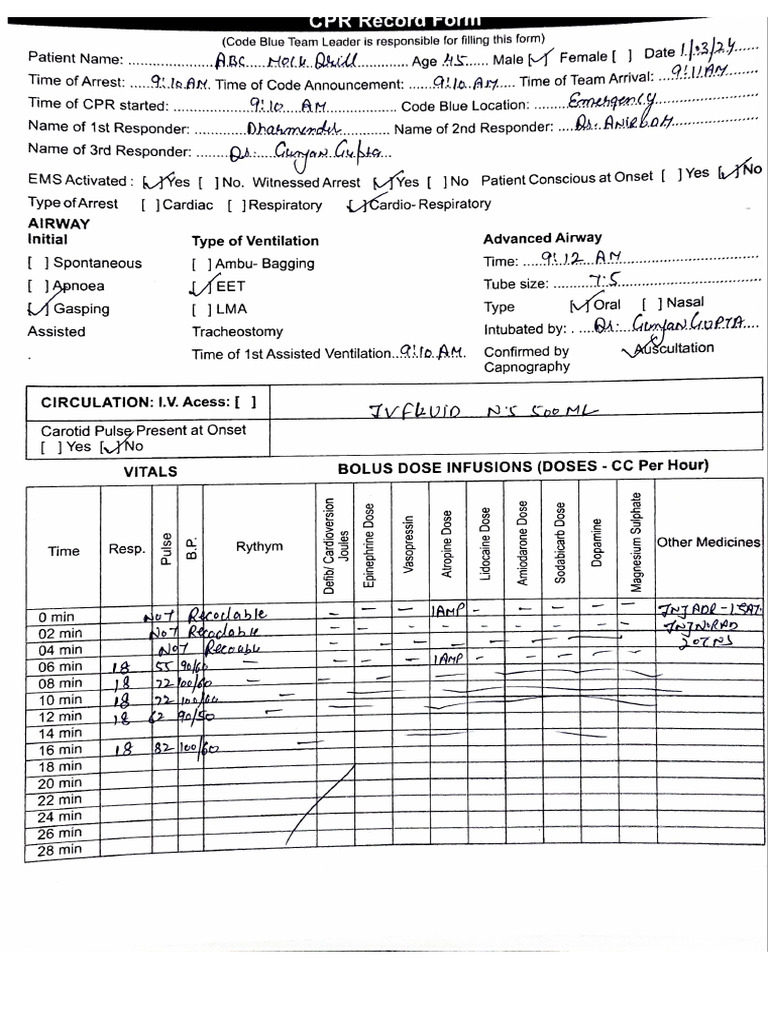 CPR Record Form
(Code Blue Team Leader is responsible for filling this form)
Patient Name: ABC Mock Drill Age 45 Male [✓] Female [ ] Date 1/03/24
Time of Arrest: 9:10 AM Time of Code Announcement: 9:10 AM Time of Team Arrival: 9:11 AM
Time of CPR started: 9:10 AM Code Blue Location: Emergency
Name of 1st Responder: Dharmender Name of 2nd Responder: Dr. ANIRBAN
Name of 3rd Responder: Dr. Gunjan Gupta
EMS Activated : [✓] Yes [ ] No. Witnessed Arrest [✓] Yes [ ] No Patient Conscious at Onset [ ] Yes [✓] No
Type of Arrest [ ] Cardiac [ ] Respiratory [✓] Cardio- Respiratory
AIRWAY
Initial Type of Ventilation Advanced Airway
[ ] Spontaneous [ ] Ambu- Bagging Time: 9:12 AM
[ ] Apnoea [✓] EET Tube size: 7.5
[✓] Gasping [ ] LMA Type [✓] Oral [ ] Nasal
Assisted Tracheostomy Intubated by: Dr: Gunjan GUPTA
. Time of 1st Assisted Ventilation 9:10 AM. Confirmed by ✓ Auscultation
Capnography
CIRCULATION: I.V. Acess: [ ] IV FLUID N.S 500 ML
Carotid Pulse Present at Onset
[ ] Yes [✓] No
VITALS BOLUS DOSE INFUSIONS (DOSES - CC Per Hour)
Time Resp. Pulse B.P. Rythym Defib/ Cardioversion Joules Epinephrine Dose Vasopressin Atropine Dose Lidocaine Dose Amiodarone Dose Sodabicarb Dose Dopamine Magnesium Sulphate Other Medicines
0 min Not Recoclable - - - 1AMP - - - - - INJ ADR -
02 min Not Recoclable - - - - - - - - - INJ NORAD
04 min Not - - - - - - - - -
06 min 18 55 90/60 - - - - 1AMP - - - - -
08 min 18 72 100/60 -
10 min 18 72 -
12 min 18 62 90/50 -
14 min
16 min 18 82 100/60 -
18 min
20 min
22 min
24 min
26 min
28 min